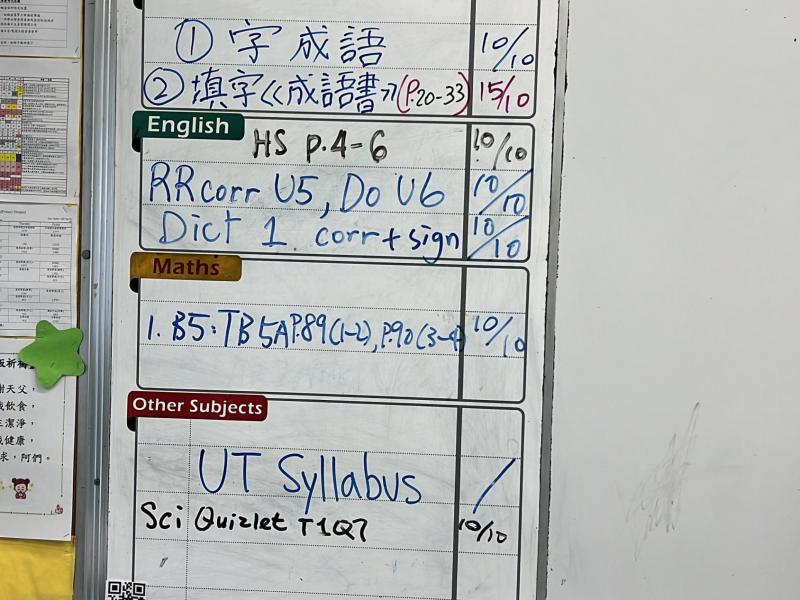 ① 字成語 10/10
② 填字《成語書》(P.20-33) 15/10
English
HS p.4-6 10/10
RR corr U5, Do U6 10/10
Dict 1 corr + sign 10/10
Maths
1. B5: TB 5A P.89(1-2), P.90(3-4) 10/10
Other Subjects
UT Syllabus /
Sci Quizlet T1Q7 10/10
謝天父，
飲食，
潔淨，
健康，
求，阿們。